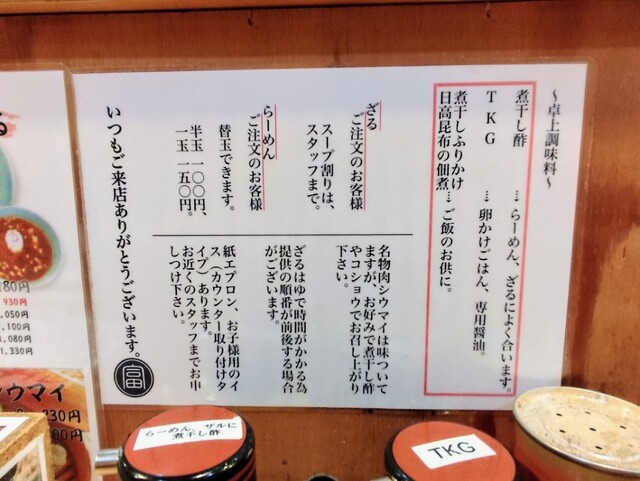 ～卓上調味料～
煮干し酢 … らーめん、ざるによく合います。
TKG … 卵かけごはん、専用醤油。
煮干しふりかけ
日高昆布の佃煮… ご飯のお供に。
ざる
ご注文のお客様
スープ割りは、
スタッフまで。
らーめん
ご注文のお客様
替玉できます。
半玉 一〇〇円、
一玉 一五〇円。
名物肉シウマイは味ついて
ますが、お好みで煮干し酢
やコショウでお召し上がり
下さい。
ざるはゆで時間がかかる為
提供の順番が前後する場合
がございます。
紙エプロン、お子様用のイ
ス（カウンター取り付けタ
イプ）あります。
お近くのスタッフまでお申
しつけ下さい。
いつもご来店ありがとうございます。
富
180円
930円
,050円
,100円
,080円
1,330円
シウマイ
330円
00円
らーめん、ザルに
煮干し酢
TKG